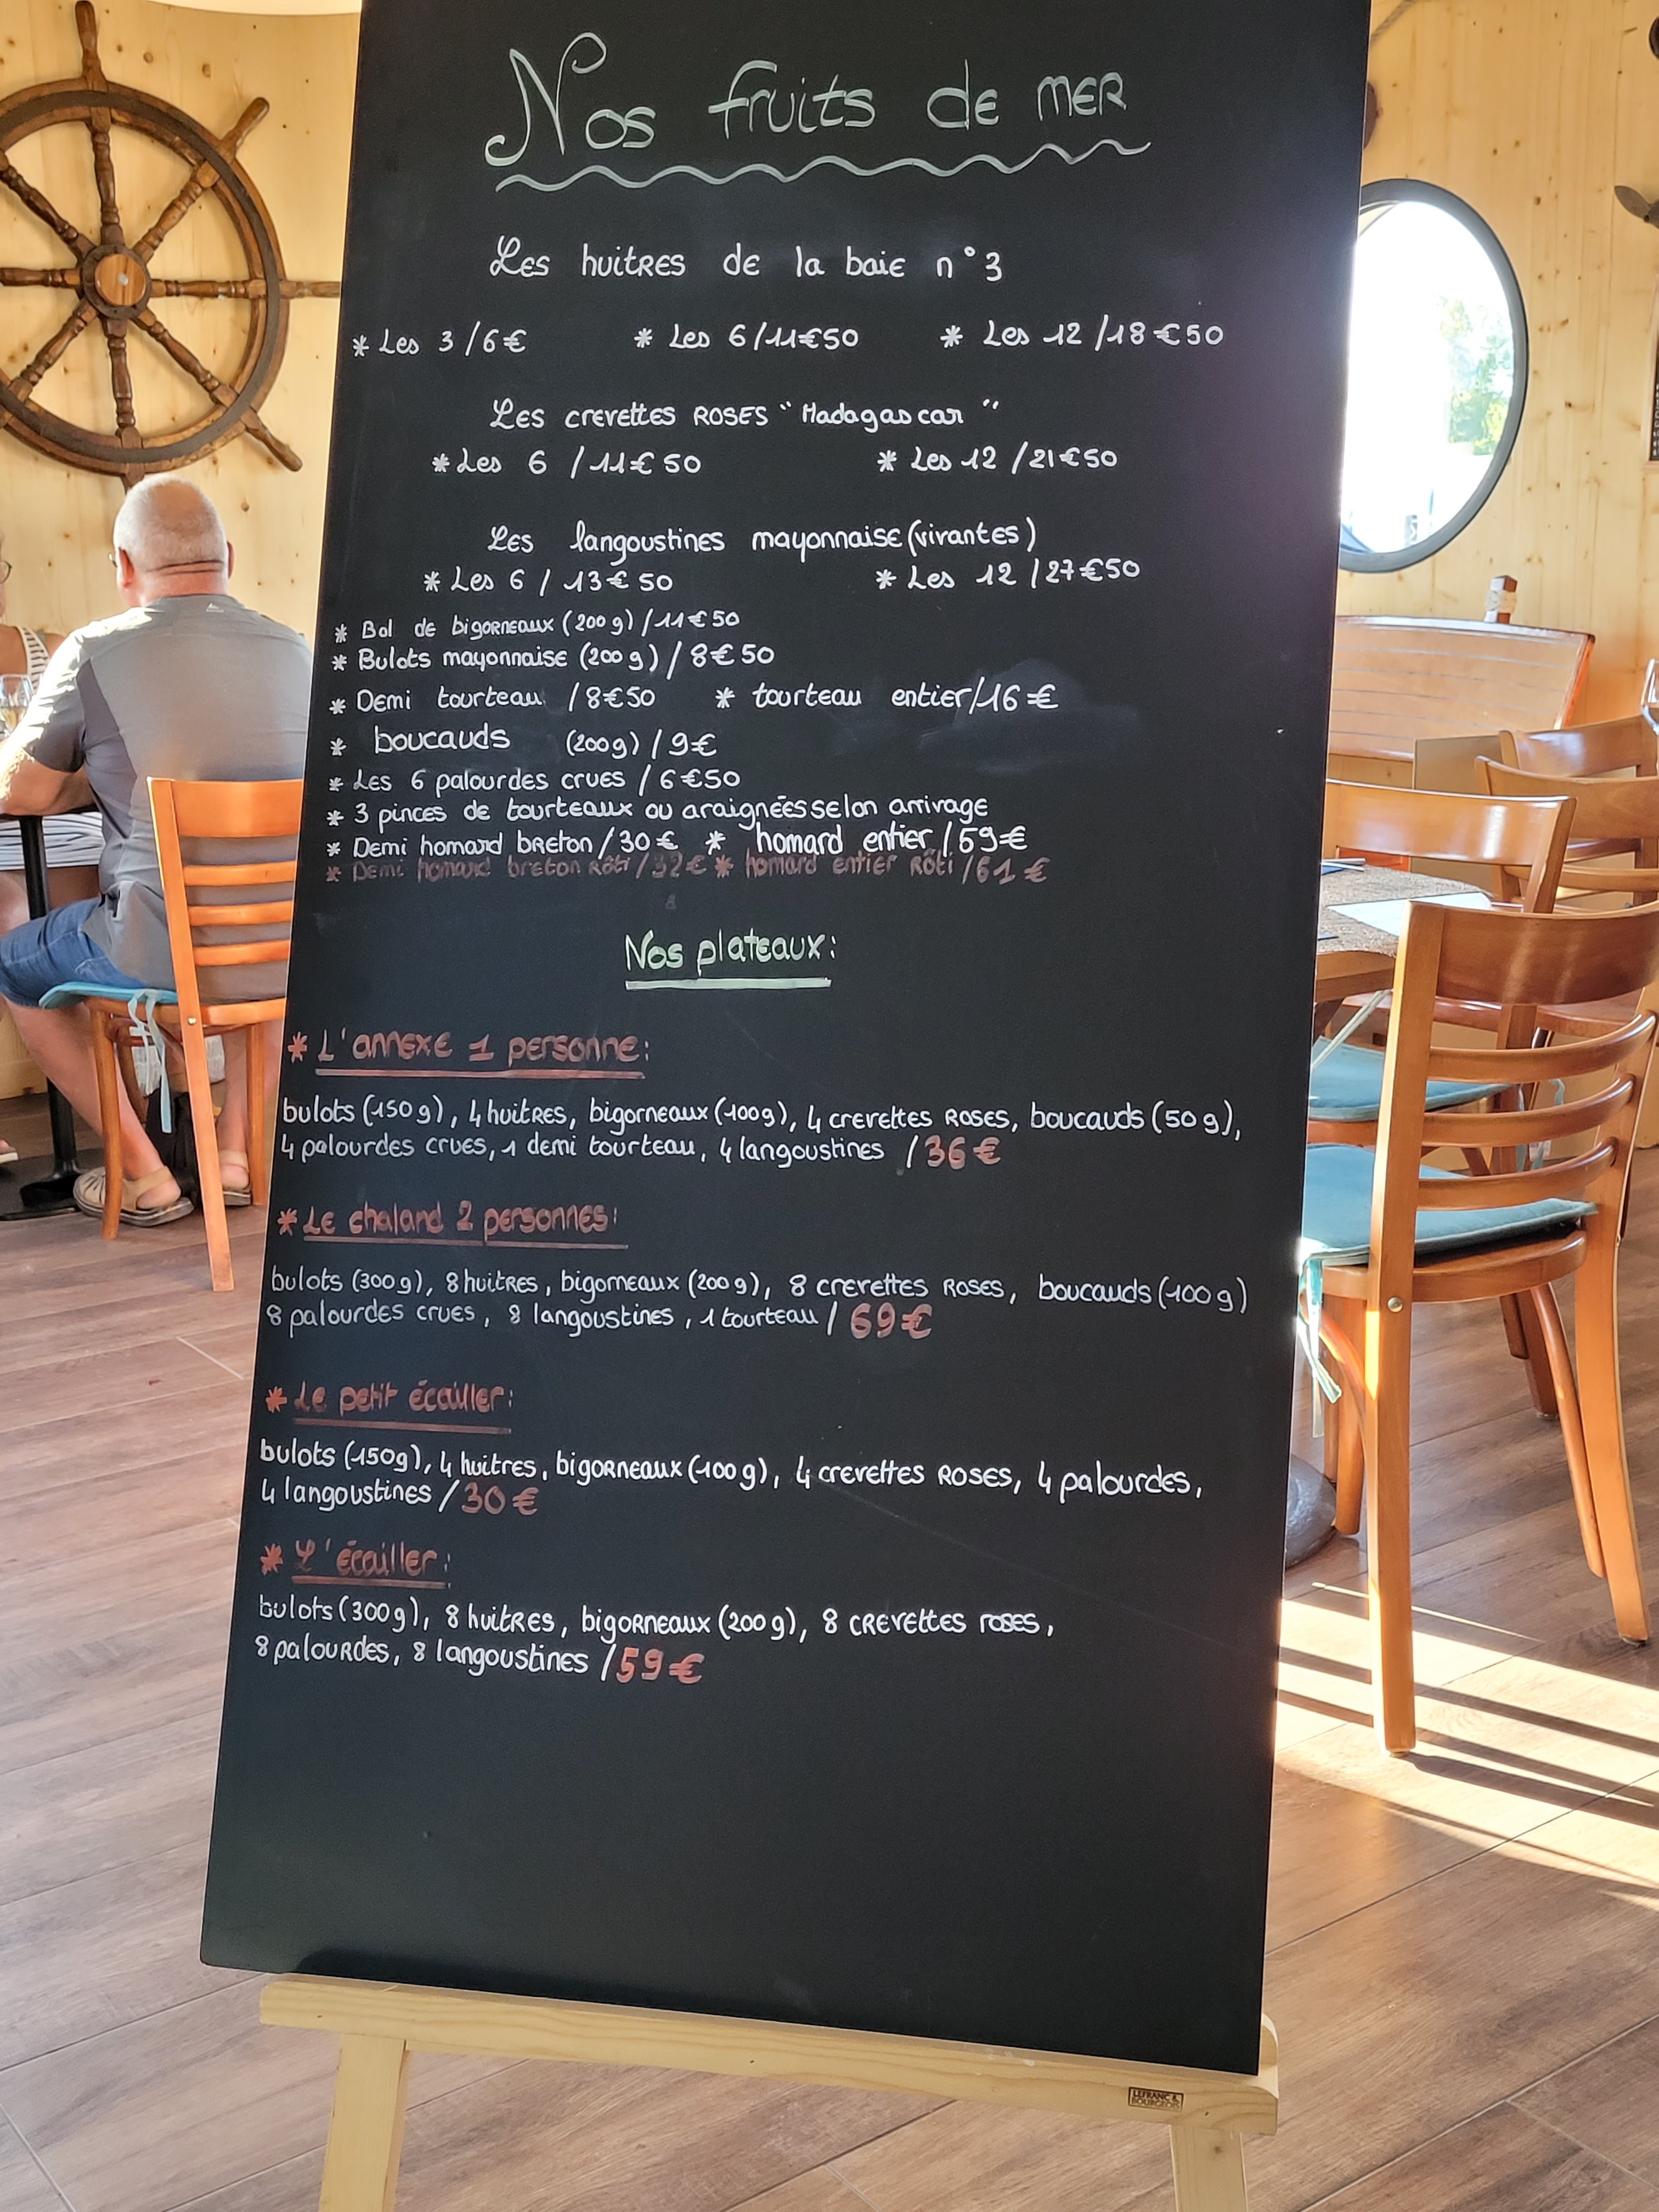 Nos fruits de MER
Les huitres de la baie n°3
* Les 3 /6€ * Les 6/11€50 * Les 12 /18€50
Les crevettes ROSES "Madagascar"
* Les 6 /11€50 * Les 12 /21€50
Les langoustines mayonnaise (vivantes)
* Les 6 / 13€50 * Les 12 /27€50
* Bol de bigorneaux (200g) /11€50
* Bulots mayonnaise (200g) / 8€50
* Demi tourteau /8€50 * tourteau entier/16€
* boucauds (200g) /9€
* Les 6 palourdes crues / 6€50
* 3 pinces de tourteaux ou araignées selon arrivage
* Demi homard breton/30€ * homard entier /59€
* Demi homard breton Rôti /32€ * homard entier Rôti /61€
Nos plateaux:
* L'annexe 1 personne:
bulots (150g), 4 huitres, bigorneaux (100g), 4 crevettes Roses, boucauds (50g),
4 palourdes crues, 1 demi tourteau, 4 langoustines /36€
* Le chaland 2 personnes:
bulots (300g), 8 huitres, bigorneaux (200g), 8 crevettes Roses, boucauds (100g)
8 palourdes crues, 8 langoustines, 1 tourteau / 69€
* Le petit écailler:
bulots (150g), 4 huitres, bigorneaux (100g), 4 crevettes Roses, 4 palourdes,
4 langoustines /30€
* L'écailler:
bulots (300g), 8 huitres, bigorneaux (200g), 8 crevettes roses,
8 palourdes, 8 langoustines /59€
LEFRANC &
BOURGEOIS